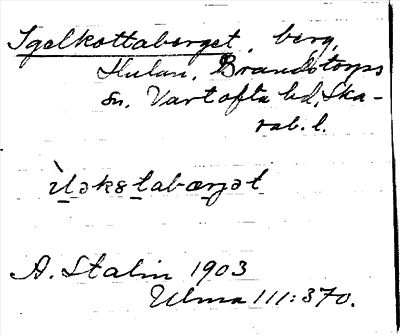 Igelkottaberget, berg,
Hulan, Brandstorps
sn. Vartofta hd, Ska-
rab. l.
ìl̠əks t̠abærjət
A. Stalin 1903
Ulma 111:370.